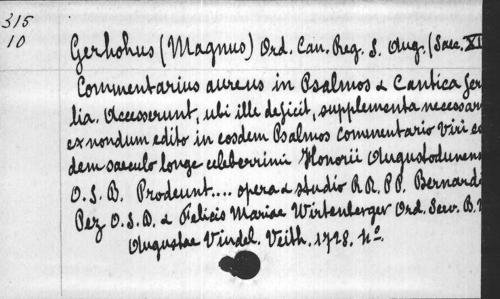 315
10
Gerhohus (Magnus) Ord. Can. Reg. S. Aug. (Saec. XI
Commentarius aureus in Psalmos & Cantica fer
lia. Accesserunt, ubi ille deficit, supplementa necessar
ex nondum edito in eosdem Psalmos commentario Viri eo
dem saeculo longe celeberrimi Honorii Augustodunens
O.S.B. Prodeunt.... opera & studio R.R. P.P. Bernardi
Pez O.S.B. & Felicis Mariae Wirtenberger Ord. Serv. B.
Augustae Vindel. Veith. 1728. 4º.